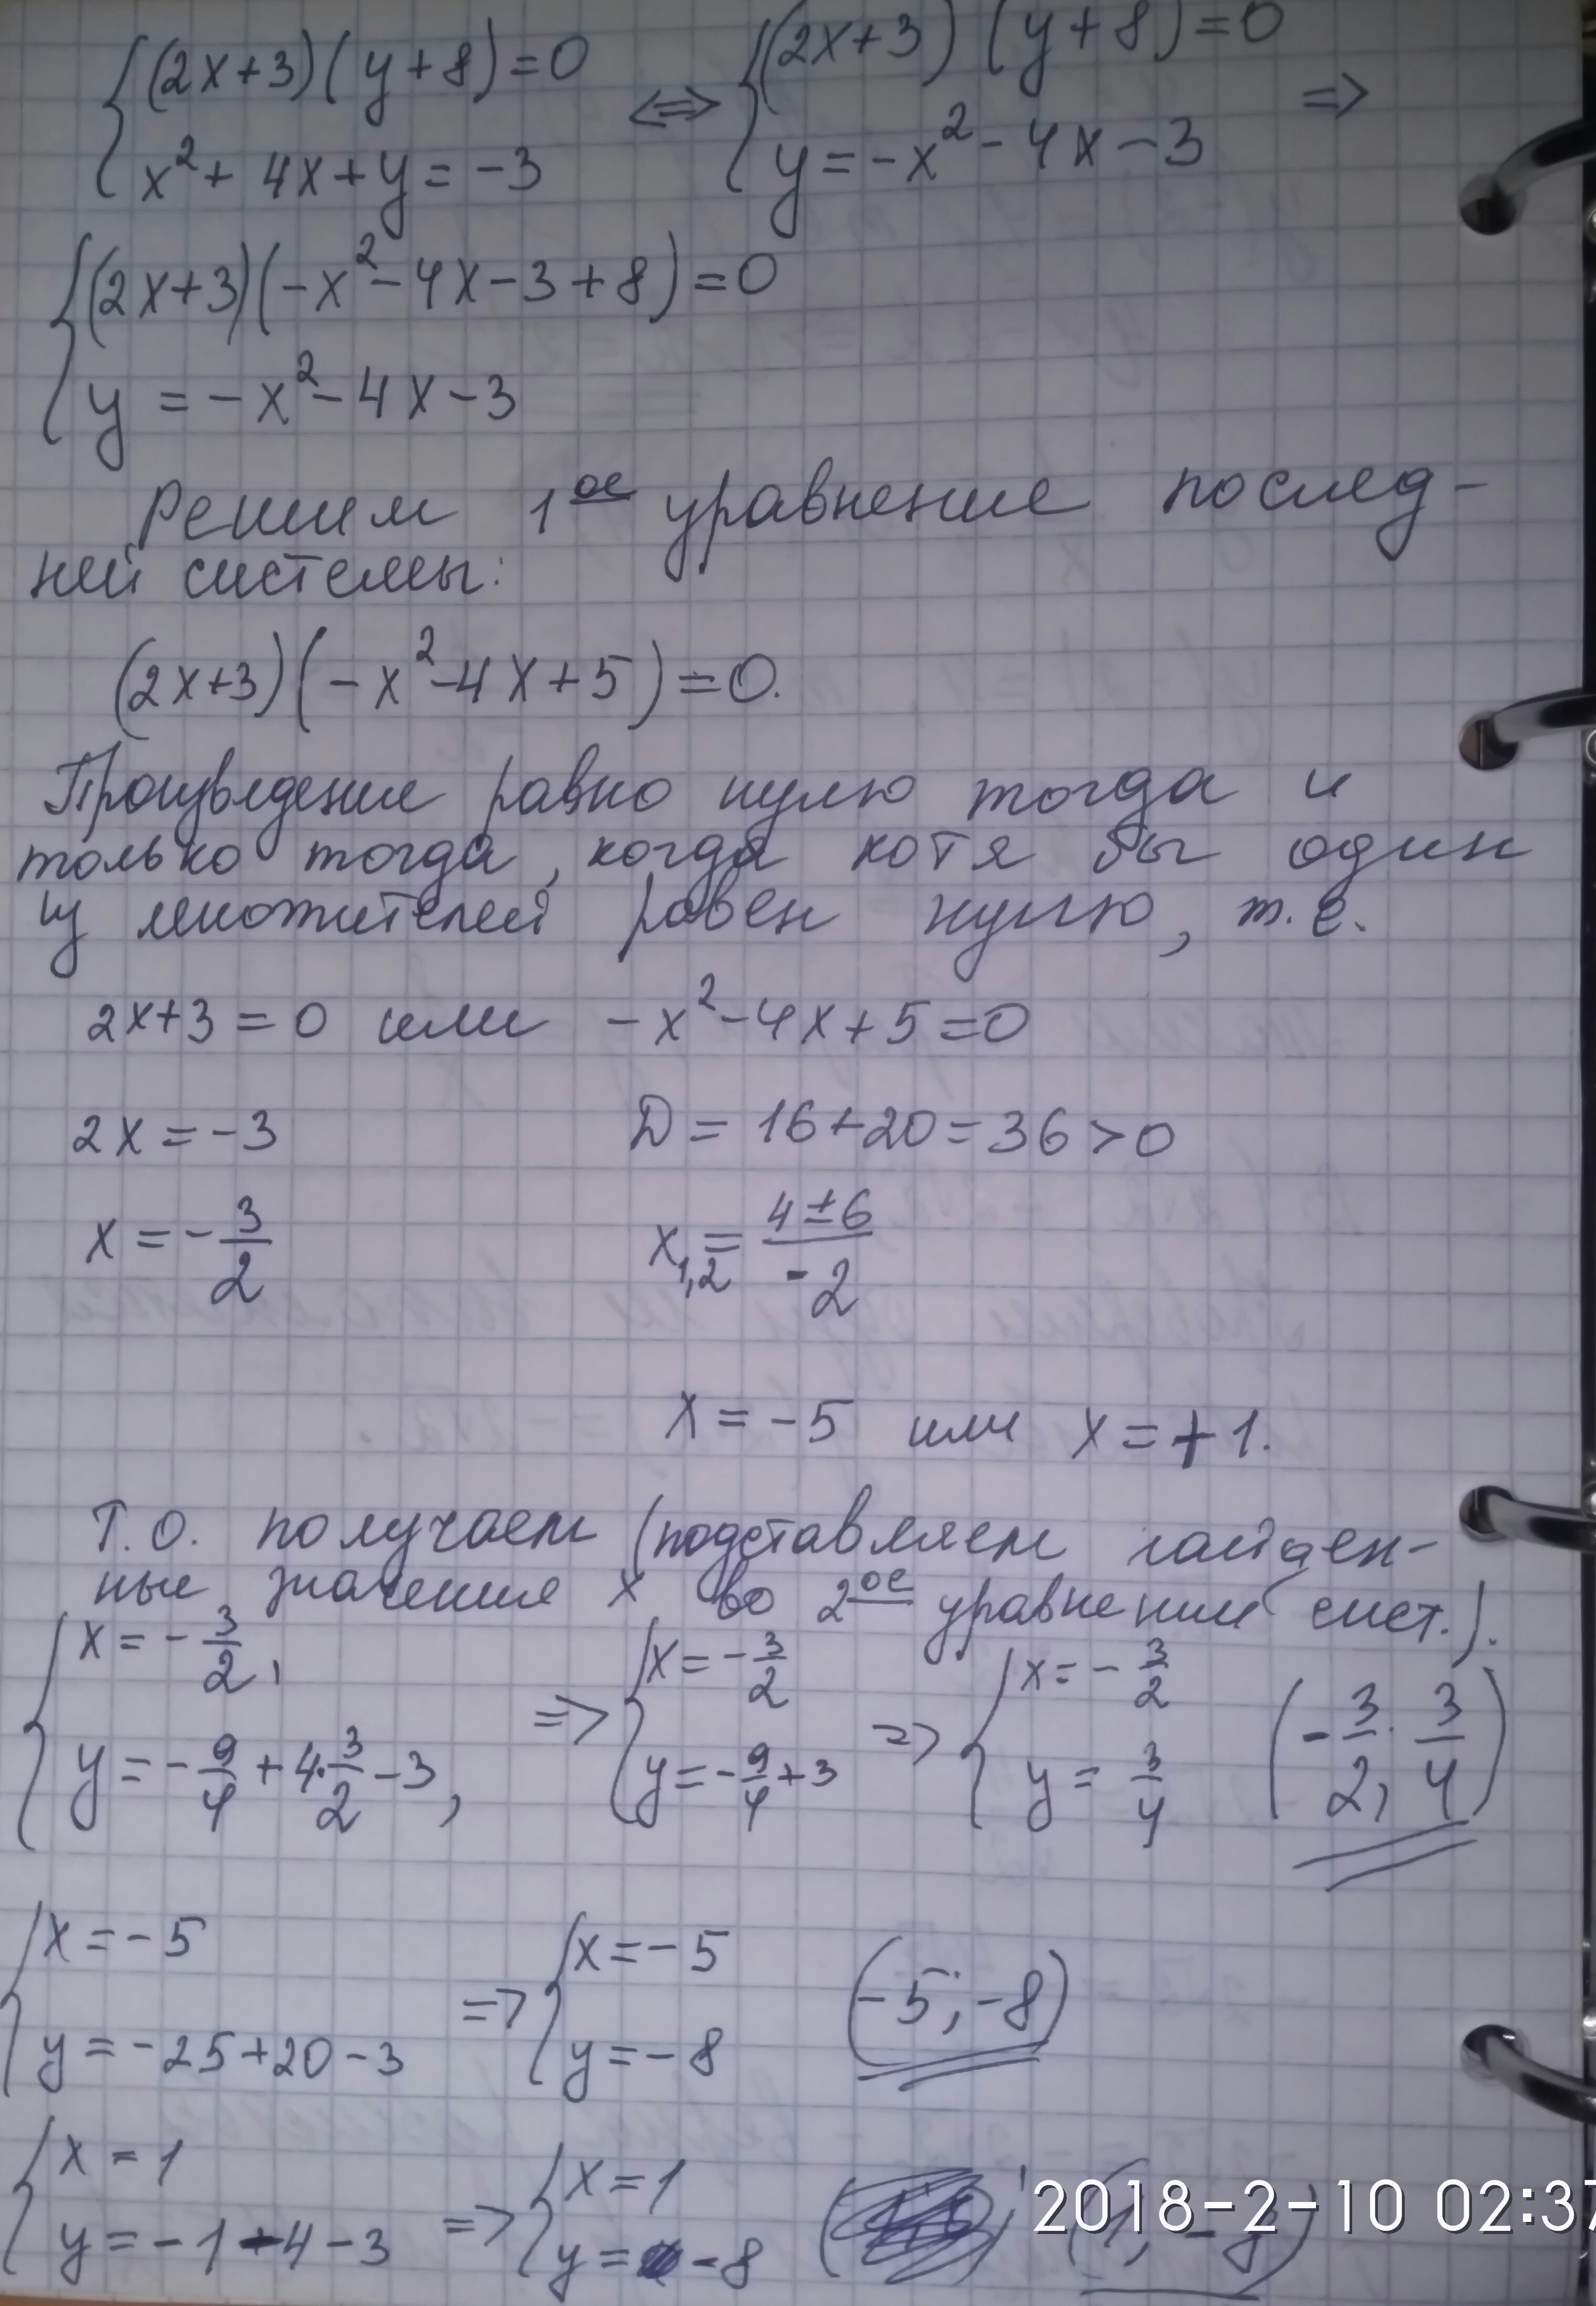 {(2x+3)(y+8)=0 <=> {(2x+3)(y+8)=0 =>
x²+4x+y=-3 y=-x²-4x-3
{(2x+3)(-x²-4x-3+8)=0
y=-x²-4x-3
Решим 1ое уравнение послед-
ней системы:
(2x+3)(-x²-4x+5)=0.
Произведение равно нулю тогда и
только тогда, когда хотя бы один
из множителей равен нулю, т.е.
2x+3=0 или -x²-4x+5=0
2x=-3 D=16+20=36>0
x=-3/2 x1,2=(4±6)/-2
x=-5 или x=+1.
Т.О. получаем (подставляем найден-
ные значения x во 2ое уравнение сист.).
{x=-3/2, => {x=-3/2 => {x=-3/2 (-3/2; 3/4)
y=-9/4+4·3/2-3, y=-9/4+3 y=3/4
{x=-5 => {x=-5 (-5;-8)
y=-25+20-3 y=-8
{x=1 => {x=1
y=-1-4-3 y=-8 (1; -8)
2018-2-10 02:37